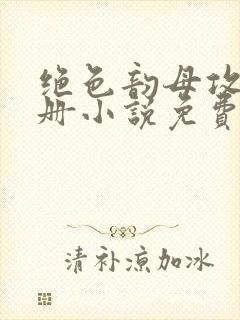 绝色韵母攻
册小説免費
清补凉加冰